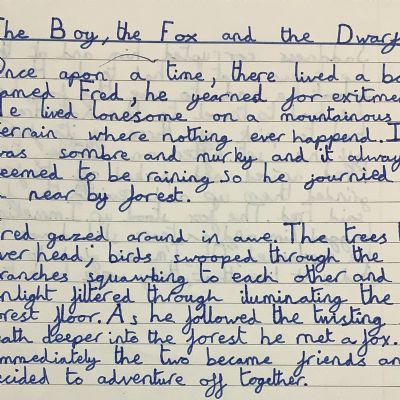 The Boy, the Fox and the Dwarf
Once apon a time, there lived a bo
named Fred, he yearned for exitme
He lived lonesome on a mountainous
terrain where nothing ever happend. I
was sombre and murky and it alway
seemed to be raining so he journied
near by forest.
Fred gazed around in awe. The trees
over head; birds swooped through the
branches squawking to each other and
unlight filtered through iluminating the
forest floor. As he followed the twisting
path deeper into the forest he met a fox.
Immediately the two became friends an
decided to adventure off together.